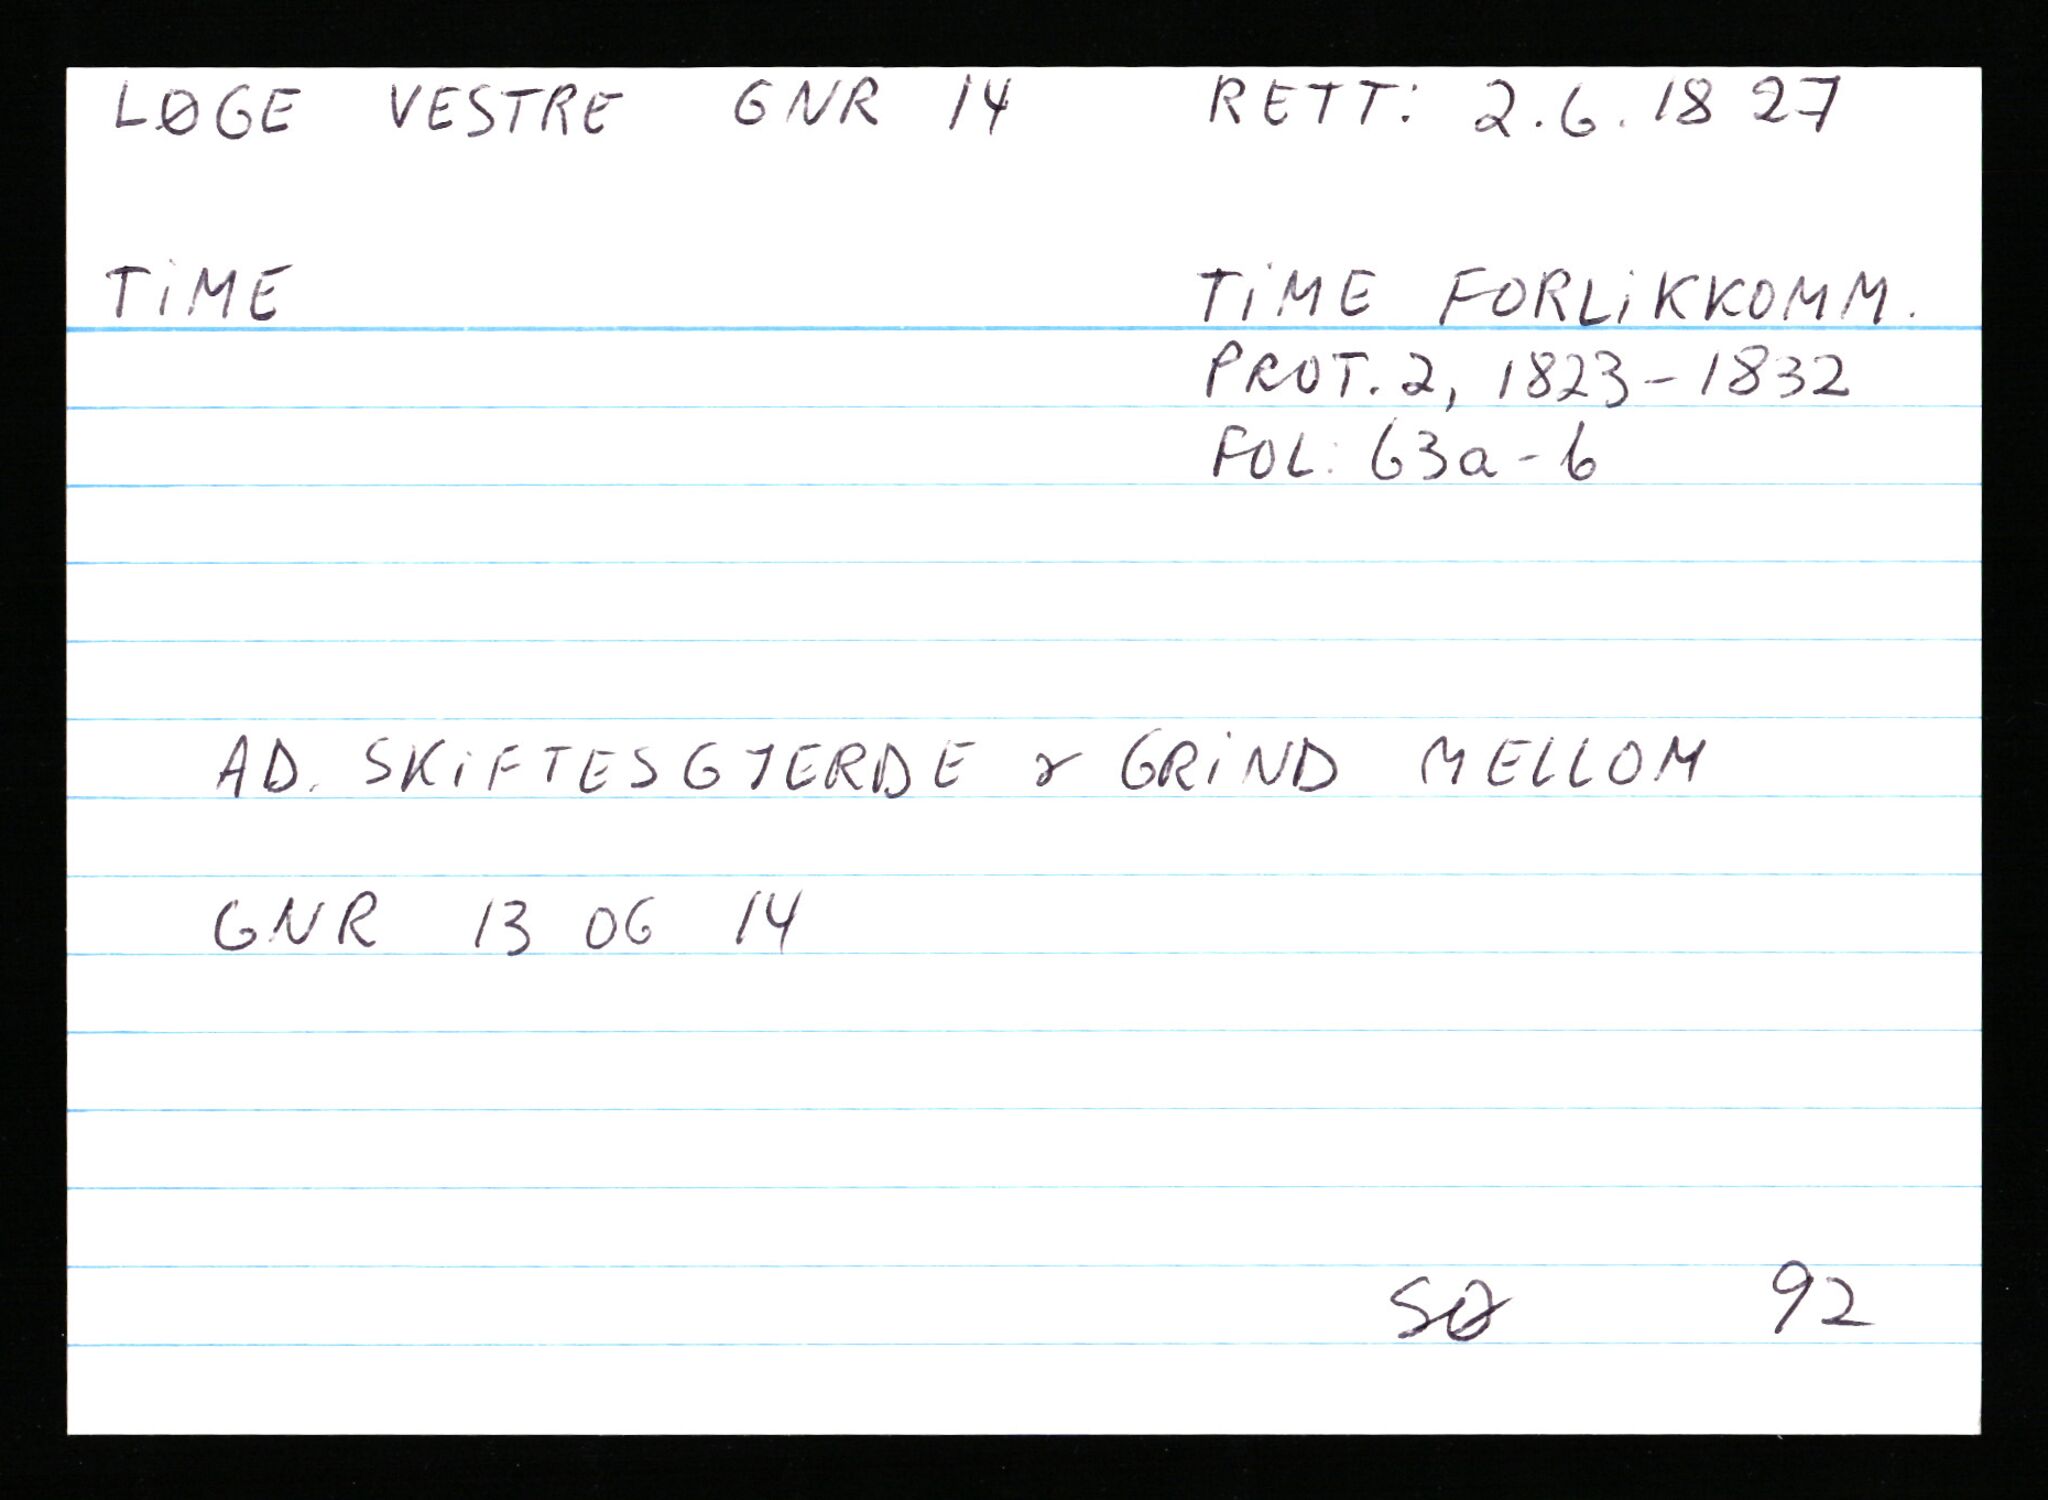 LØGE VESTRE GNR 14 RETT: 2.6.1827
TIME TIME FORLIKKOMM.
PROT. 2, 1823-1832
FOL: 63a-b
AD. SKIFTESGJERDE & GRIND MELLOM
GNR 13 OG 14
SØ 92